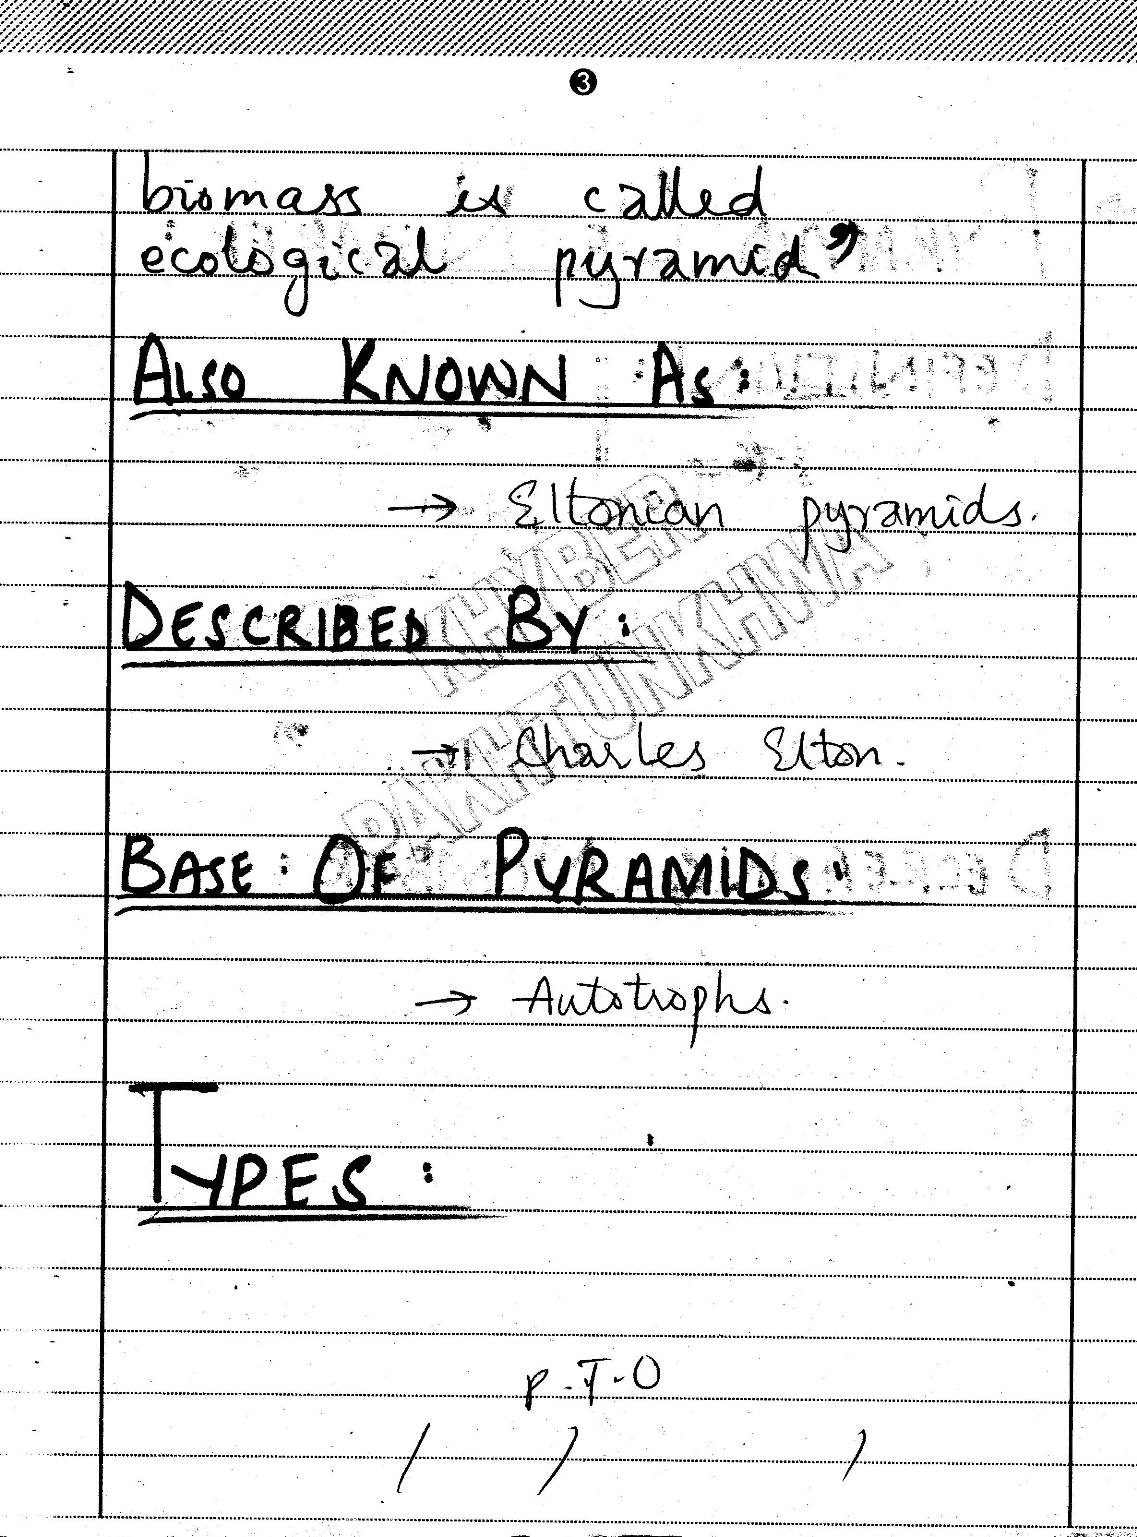 3
biomass is called
ecological pyramid”
ALSO KNOWN AS:
→ Eltonian pyramids.
DESCRIBED BY:
→ Charles Elton.
BASE: OF PYRAMIDS:
→ Autotrophs.
TYPES:
P.T.O
KHYBER
PAKHTUNKHWA